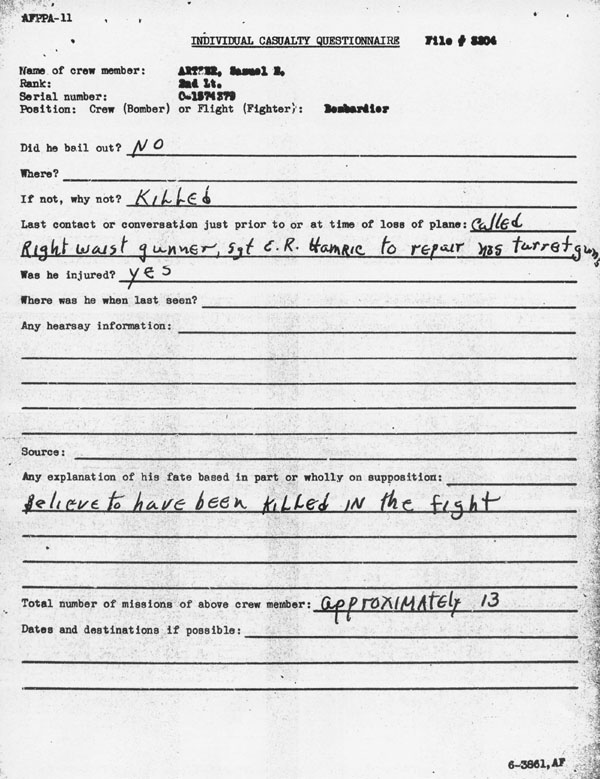 AFPPA-11
INDIVIDUAL CASUALTY QUESTIONNAIRE File #
Name of crew member: Samuel E.
Rank: 2nd Lt.
Serial number: O-1574379
Position: Crew (Bomber) or Flight (Fighter): Bombardier
Did he bail out? NO
Where?
If not, why not? KILLed
Last contact or conversation just prior to or at time of loss of plane: Called
Right waist gunner, Sgt E.R. HAMRIC to repair his turret guns
Was he injured? yes
Where was he when last seen?
Any hearsay information:
Source:
Any explanation of his fate based in part or wholly on supposition:
Believe to have been KILLed IN the fight
Total number of missions of above crew member: approximately 13
Dates and destinations if possible:
6-3861,AF